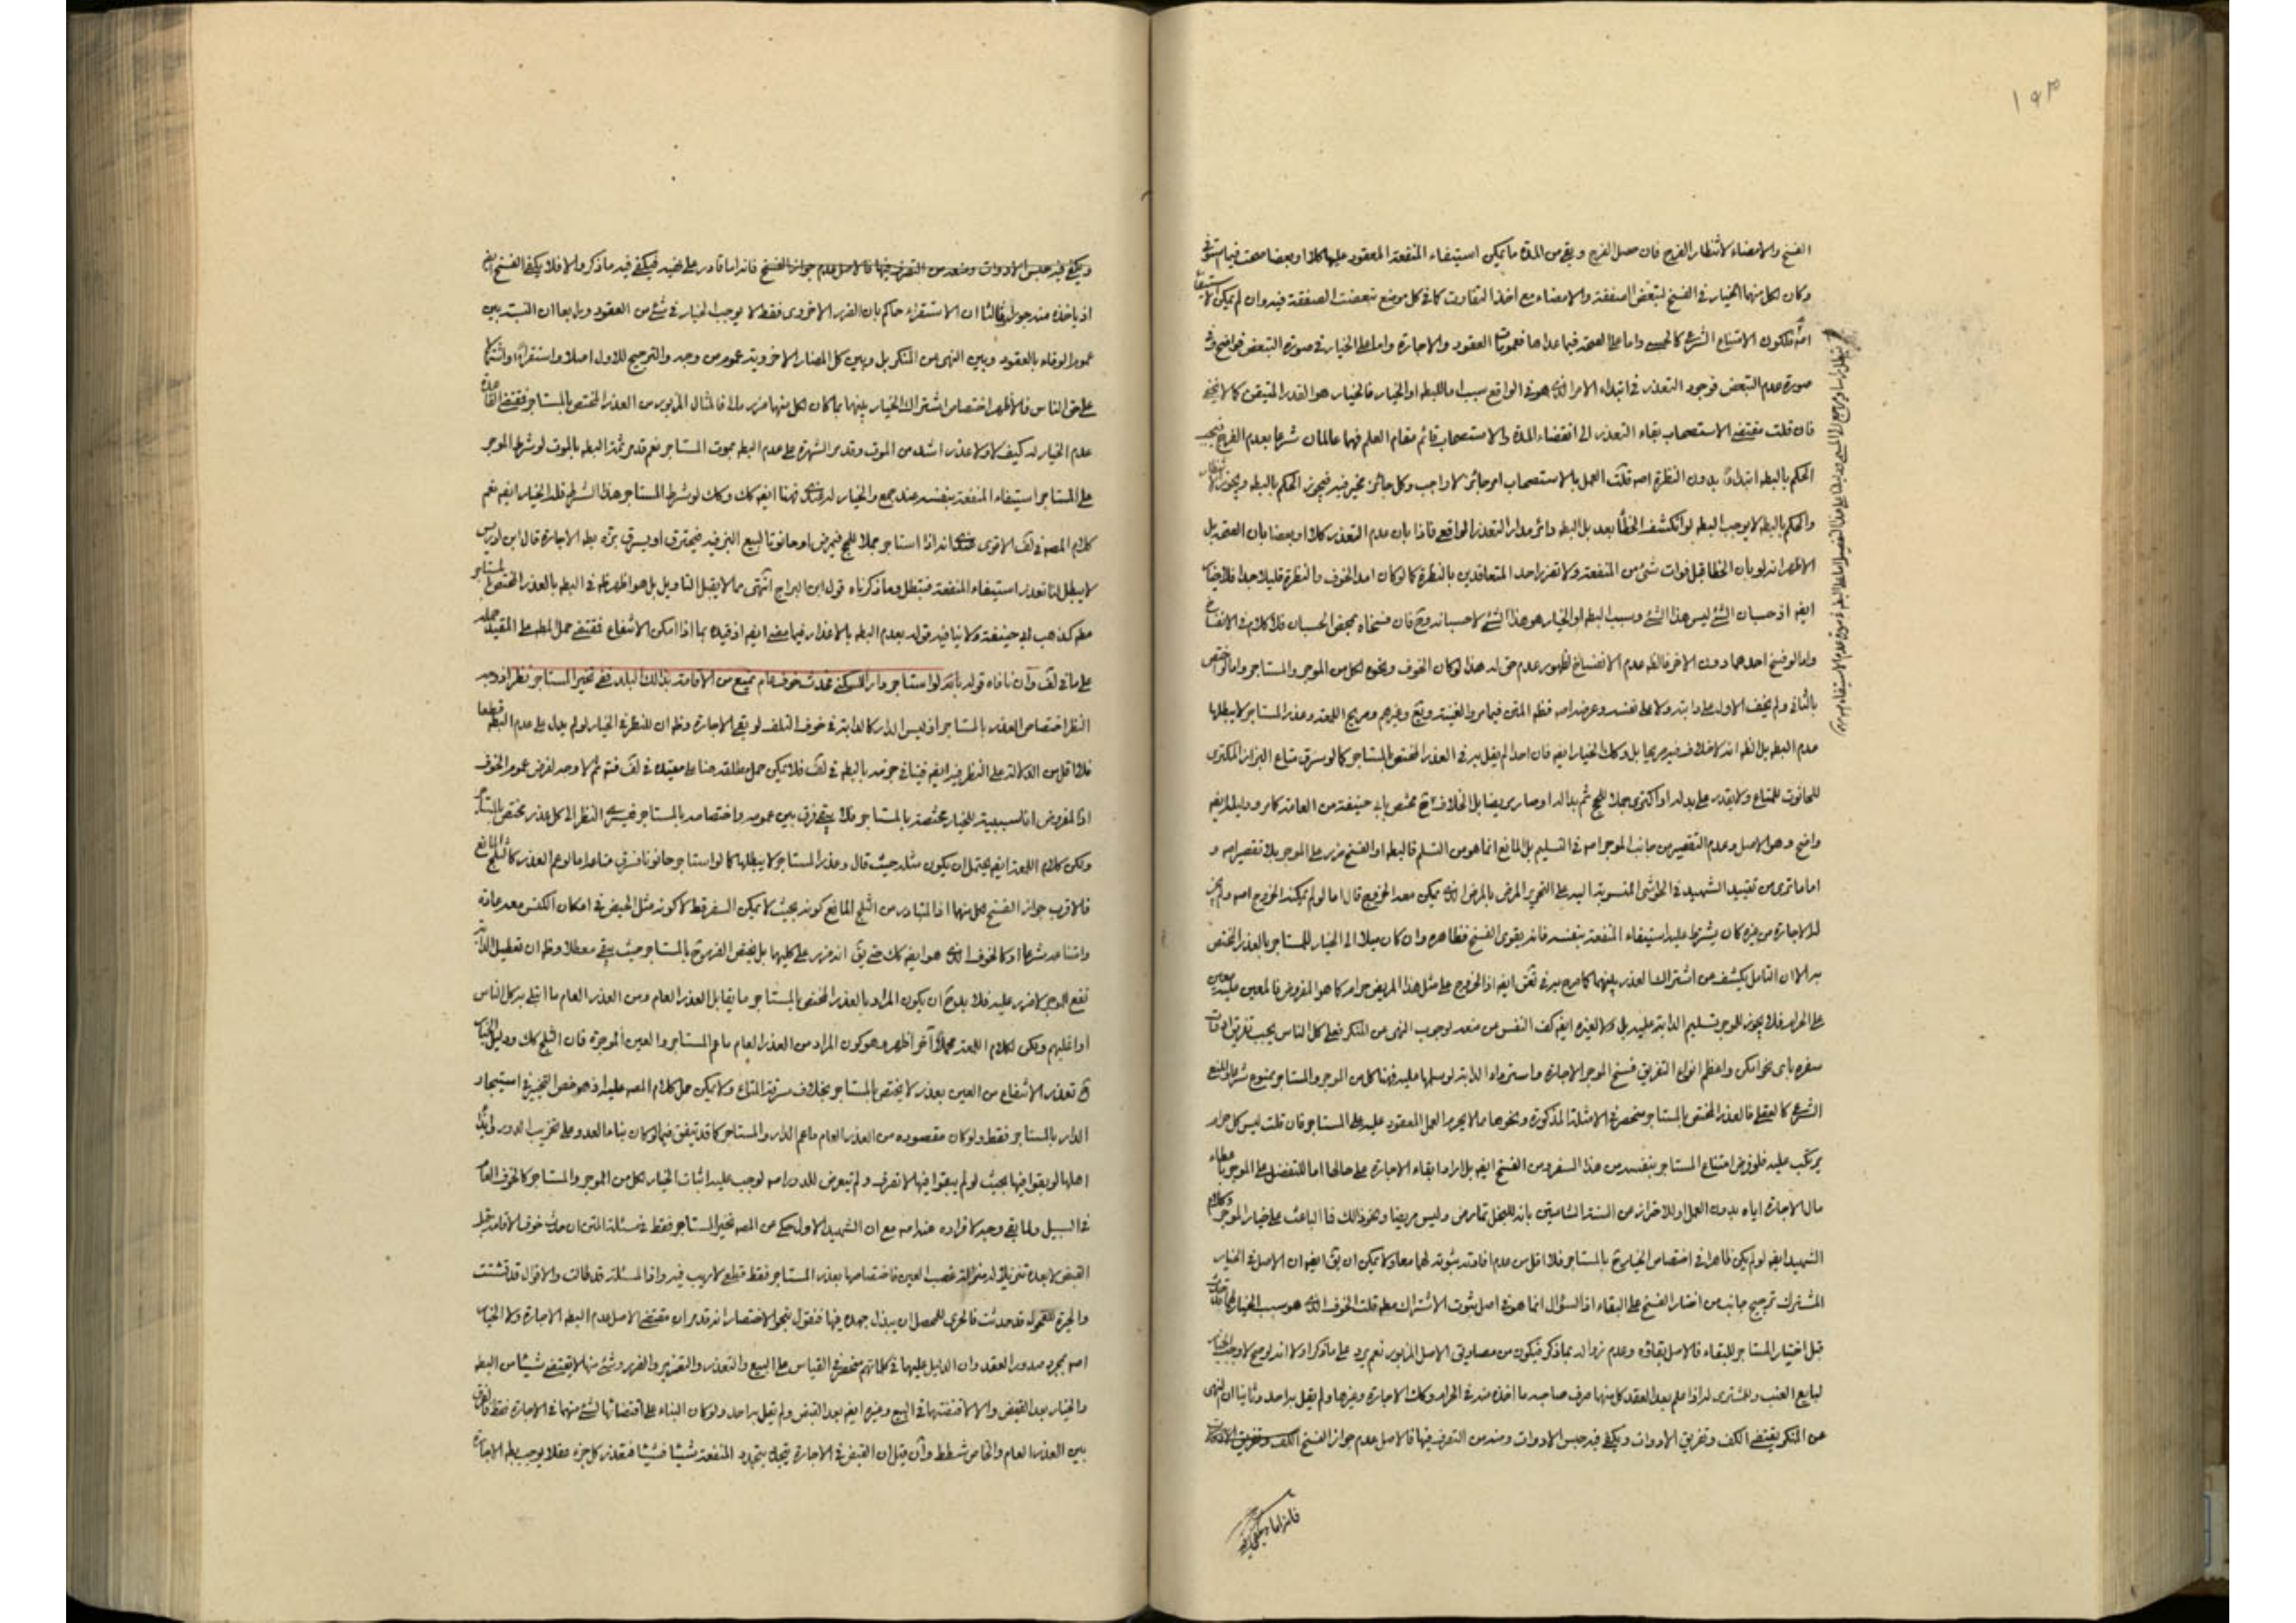 ١٩٣
الفسخ والامضاء لانتظار الفرج فان حصل الفرج و بقى من المدة ما يمكن استيفاء المنفعة المعقود عليها كلا او بعضا صحت فيما
وكان لكل منهما الخيار فى الفسخ لتبعض الصفقة والامضاء مع اخذ التفاوت كما فى كل موضع تبعضت الصفقة فيه وان لم يمكن
لكون الامتناع الشرعى كالحسى واما على الصحة فيما عداها فعمومات العقود والاجارة واما على الخيار فى صورة التبعض فواضح وفى
صورة عدم التبعض فوجود التعذر فى ابتداء الامر الذى هو فى الواقع سبب اما للبطه او الخيار فالخيار هو القدر المتيقن كما لا يخفى
فان قلت مقتضى الاستصحاب بقاء التعذر الى انقضاء المدة والاستصحاب قائم مقام العلم فهما عالمان شرعا بعدم الفرج فيجب
الحكم بالبطه ابتداءً بدون النظرة اصه قلت العمل بالاستصحاب امر جائز لا واجب وكل جائز مخير فيه فيجوز الحكم بالبطه ويجوز
والحكم بالبطه لا يوجب البطه لو انكشف الخطأ بعد بل البطه دائر مدار التعذر الواقعى فاذا بان عدم التعذر كلا او بعضا بان الصحة بل
الاظهر انه لو بان الخطا قبل فوات شئ من المنفعة ولا تضرر احد المتعاقدين بالنظرة كما لو كان امد الخوف والنظرة قليلا جدا فلا خيار
ايضه اذ حسبان الشئ ليس هذا الشئ وسبب البطه او الخيار هو هذا الشئ لا حسبانه وح فان فسخاه بمحض الحسبان فلا كلام فى الانفساخ
واما لو فسخ احدهما دون الاخر فالظه عدم الانفساخ لظهور عدم حق له هذا لو كان الخوف ونحوه لكل من الموجر والمستاجر واما لو اختص
بالثانى ولم يخف الاول على دابته ولا على نفسه وعرضه اصه فظه المتن فيما مر والغنية وغيرهم وصريح اللمعة وعذر المستاجر لا يبطلها
عدم البطه بل الظه انه لا خلاف فيه صريحا بل وكك الخيار ايضه فان احدا لم يقل به فى العذر المختص بالمستاجر كما لو سرق متاع البزاز المكترى
للحانوت للمتاع ولا يقدر على بدله او اكترى جملا للحج ثم بدا له او صار مريضا بل الخلاف ح مختص بابى حنيفة من العامة كما مر ودليلهم ايضه
واضح وهو الاصل وعدم التقصير من جانب الموجر اصه فى التسليم بل المانع انما هو من التسلم فالبطه او الفسخ ضرر على الموجر بلا تقصير اصه و
اما ما ترى من تقييد الشهيد فى الحواشى المنسوبة اليه على التحرير المرض بالمرض الذى يمكن معه الخروج قال اما لو لم يمكنه الخروج اصه ولم يجز
له الاجارة من غيره كان يشترط عليه استيفاء المنفعة بنفسه فانه يقوى الفسخ فظاهره وان كان ميلا الى الخيار للمستاجر بالعذر المختص
به الا ان التامل يكشف عن اشتراك العذر بينهما كما صرح به فى ايضه اذ الخروج على مثل هذا المريض حرام كما هو المفروض فالمعين عليه معين
على الحرام فلا يجوز للموجر تسليم الدابة عليه بل ولا لغيره ايضه كف النفس من منعه لوجوب النهى عن المنكر فعلى كل الناس يجب تفريق ادوات
سفره باى نحو امكن واعظم انواع التفريق فسخ الموجر الاجارة واسترداد الدابة لو سلمها عليه فهنا كل من الموجر والمستاجر ممنوع شرعا والمنع
الشرعى كالعقلى فالعذر المختص بالمستاجر منحصر فى الامثلة المذكورة ونحوها مما لا يحرم العمل المعقود عليه على المستاجر فان قلت ليس كل حرام
يرتكب عليه فلو فرض امتناع المستاجر بنفسه من هذا السفر ومن الفسخ ايضه بل اراد ابقاء الاجارة على حالها اما للتفضل على الموجر باعطاء
مال الاجارة اياه بدون العمل او للاحتراز من السنة الشامتين بانه للبخل تمارض وليس مريضا ونحو ذلك فما الباعث على خيار الموجر وكلام
الشهيد ايضه لو لم يكن ظاهرا فى اختصاص الخيار ح بالمستاجر فلا اقل من عدم افادته ثبوته لهما معا ولا يمكن ان يق ايضه ان الاصل فى الخيار
المشترك ترجيح جانب من اختار الفسخ على البقاء اذ السؤال انما هو فى اصل ثبوت الاشتراك مطه قلت الخوف الذى هو سبب الخيار لهما
قبل اختيار المستاجر للبقاء فالاصل بقاؤه وعدم زواله بما ذكر فيكون من مصاديق الاصل المزبور نعم يرد على ما ذكر اولا انه لو صح لاوجب الخيار
لبايع العنب وللمشترى له اذا علم بعد العقد كل منهما صرف صاحبه ما اخذه منه فى الحرام وكك الاجارة وغيرها ولم يقل به احد وثانيا ان النهى
عن المنكر يقتضى الكف وتفريق الادوات ويكفى فيه حبس الادوات ومنعه من التصرف فيها فالاصل عدم جواز الفسخ
فانه اما
ويكفى فيه حبس الادوات ومنعه من التصرف فيها فالاصل عدم جواز الفسخ فانه اما قادر على فيكفى فيه ما ذكر والا فلا يكفى الفسخ ايضه
اذ ياخذه منه جورا وثالثا ان الاستقراء حاكم بان الضرر الاخروى فقط لا يوجب الخيار فى شئ من العقود ورابعا ان النسبة بين
عموم الوفاء بالعقود وبين النهى عن المنكر بل وبين كل المضار الاخروية عموم من وجه والترجيح للاول اصلا واستقراءً
على حق الناس فالاظهر اختصاص اشتراك الخيار بينهما بما كان لكل منهما ضرر فالمثال المزبور من العذر المختص بالمستاجر فمقتضى القاعدة
عدم الخيار له كيف لا ولا عذر اشد من الموت وقد مر الشهرة على عدم البطه بموت المستاجر نعم قد مر ثمة البطه بالموت لو شرط الموجر
على المستاجر استيفاء المنفعة بنفسه عند جمع والخيار له فهنا ايضه كك وكك لو شرط المستاجر هذا الشرط فله الخيار ايضه نعم
كلام المصه فى لف الاقوى انه اذا استاجر جملا للحج فيمرض او حانوتا لبيع البز فيه فيحترق او يسرق بزه بطه الاجارة قال ابن ادريس
لا يبطل لنا تعذر استيفاء المنفعة فتبطل وما ذكرناه قول ابن البراج انتهى مما لا يقبل التاويل بل هو اظهر ظه فى البطه بالعذر المختص بالمستاجر
مطه كمذهب ابى حنيفة ولا ينافيه قوله بعدم البطه بالاعذار فيما مضى ايضه اذ قيده بما اذا امكن الانتفاع فمقتضى حمل المطه على المقيد حمله
على ما فى لف وان نافاه قوله بانه لو استاجر دارا للسكنى فحدث خوف عام يمنع من الاقامة بذلك البلد ففى تخير المستاجر نظر اذ وجه
النظر اختصاص العذر بالمستاجر اذ ليس الدار كالدابة فى خوف التلف لو بقى الاجارة وظه ان النظر فى الخيار لو لم يدل على عدم البطه قطعا
فلا اقل من الدلالة على النظر فيه ايضه فينافى جزمه بالبطه فى لف فلا يمكن حمل مطلقه هنا على مقيده فى لف فتم ثم لا وجه لفرض عموم الخوف
اذ المفروض ان السببية للخيار مختصة بالمستاجر فلا يبقى فرق بين عمومه واختصاصه بالمستاجر فيسرى النظر الى كل عذر يختص بالمستاجر
ولكن كلام اللمعة ايضه يحتمل ان يكون مثله حيث قال وعذر المستاجر لا يبطلها كما لو استاجر حانوتا فسرق متاعه اما لو عم العذر كالثلج المانع
فالاقرب جواز الفسخ لكل منهما اذ المتبادر من الثلج المانع كونه بحيث لا يمكن السفر قط لا كونه مثل الحيض فى امكان الكنس معه عادة
وامتناعه شرعا او كالخوف الذى هو ايضه كك حتى يق انه ضرر على كليهما بل يختص الضرر ح بالمستاجر حيث يبقى معطلا وظه ان تعطيل الدابة
نفع للموجر لا ضرر عليه فلا بد ح ان يكون المراد بالعذر المختص بالمستاجر ما يقابل العذر العام ومن العذر العام ما ابتلى به كل الناس
او اغلبهم ولكن لكلام اللمعة محملاً آخر اظهر وهو كون المراد من العذر العام ما عم المستاجر والعين الموجرة فان الثلج كك ودليل الخيار
ح تعذر الانتفاع من العين بعذر لا يختص بالمستاجر بخلاف سرقة المتاع ولا يمكن حمل كلام المصه عليه اذ هو خص التخيير فى استيجار
الدار بالمستاجر فقط ولو كان مقصوده من العذر العام ما عم الدار والمستاجر كما قد يتفق فيما لو كان بناء العدو على تخريب الدور
اهلها لو بقوا فيها بحيث لو لم يبقوا فيها لا تصرف ولم تيعرض للدور اصه لوجب عليه اثبات الخيار لكل من الموجر والمستاجر كالخوف العام
فى السبيل ولما بقى وجه لافراده عنه اصه مع ان الشهيد الاول حكى عن المصه تخير المستاجر فقط فى مسئلة المتن ان حدث خوف الاقامة قبل
القبض لا بعده تنزيلا له منزلة غصب العين فاختصاصها بعذر المستاجر فقط قطعى لا ريب فيه واذ المسئلة قد طالت والاقوال قد تشتت
والحيرة للعقول قد حدثت فالحرى للمحصل ان يبذل جهده فيها فنقول بنحو الاختصار انه قد مر ان مقتضى الاصل عدم البطه الاجارة ولا الخيار
اصه بمجرد صدور العقد وان الدليل عليهما فى كلماتهم منحصر فى القياس على البيع والتعذر والتضرير والضرر وشئ منها لا يقتضى شيئا من البطه
والخيار بعد القبض والا لاقتضتهما فى البيع وغيره ايضه بعد القبض ولم يقل به احد ولو كان البناء على اقتضائها لشئ منهما فى الاجارة فقط فالفرق
بين العذر العام والخاص شطط وان قيل ان القبض فى الاجارة يتجدد بتجدد المنفعة شيئا فشيئا فتعذر كل جزء عقلا يوجب بطه الاجارة